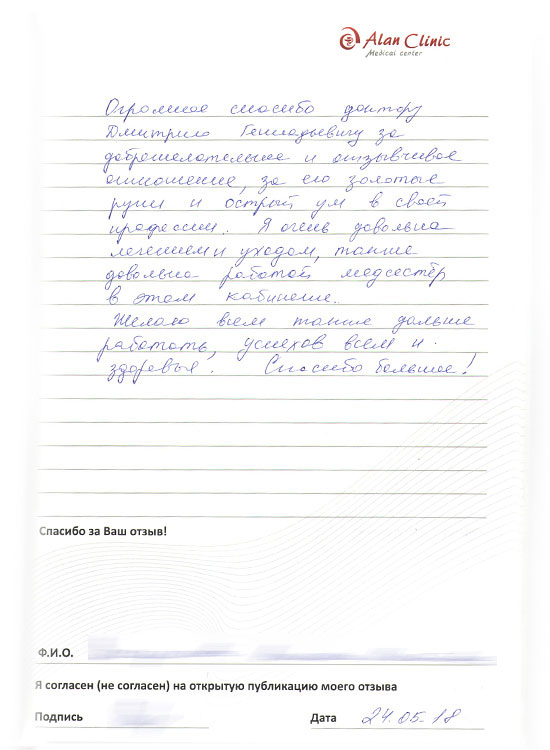 Alan Clinic
Medical center
Огромное спасибо доктору
Дмитрию Геннадьевичу за
доброжелательное и отзывчивое
отношение, за его золотые
руки и острый ум в своей
профессии. Я очень довольна
лечением и уходом, также
довольна работой медсестёр
в этом кабинете.
Желаю всем также дальше
работать, успехов всем и
здоровья. Спасибо большое!
Спасибо за Ваш отзыв!
Ф.И.О.
Я согласен (не согласен) на открытую публикацию моего отзыва
Подпись Дата 24.05.18